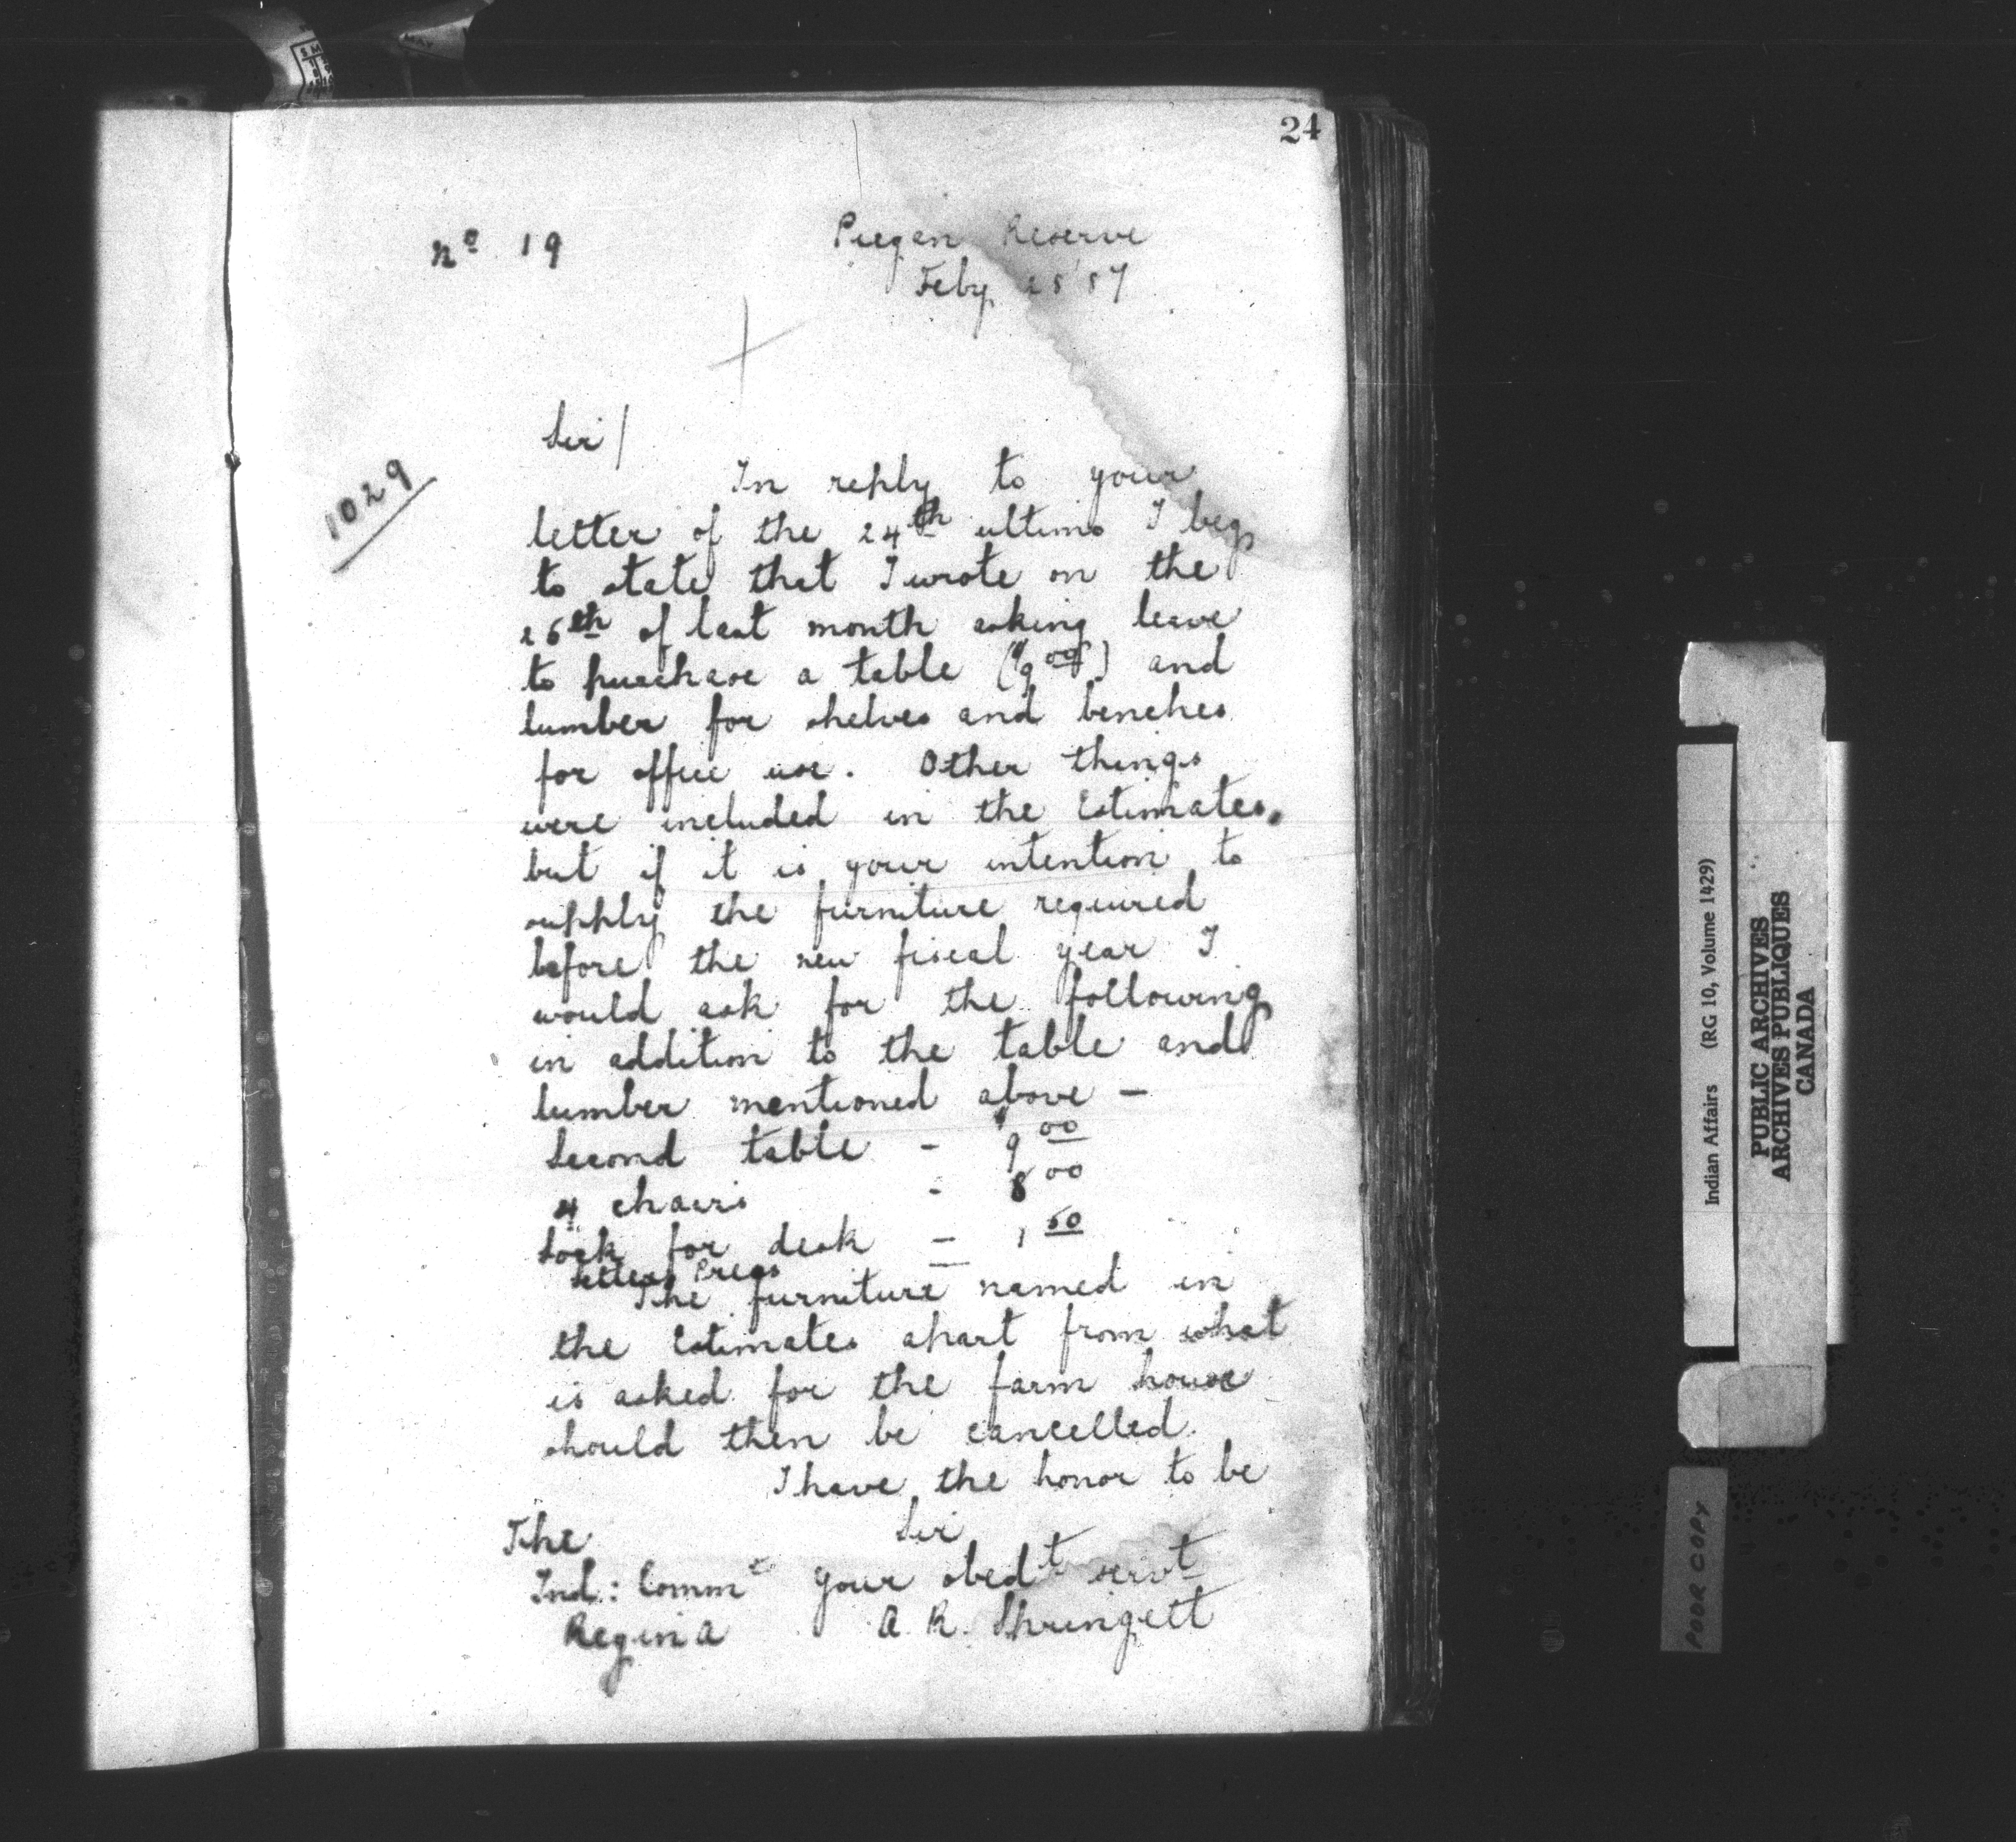 24
No. 19
Piegan Reserve
Feby 25 '87
Sir/
1029
In reply to your
letter of the 24th ultimo I beg
to state that I wrote on the
26th of last month asking leave
to purchase a table ($9 00) and
lumber for shelves and benches
for office use. Other things
were included in the Estimates,
but if it is your intention to
supply the furniture required
before the new fiscal year I
would ask for the following
in addition to the table and
lumber mentioned above —
Second table - $9 00
4 chairs - 8 00
Lock for desk - 1 50
Letter Press
The furniture named in
the Estimates apart from what
is asked for the farm house
should then be cancelled.
I have the honor to be
Sir
The
Ind: Commr your obedt servt
Regina A. R. Springett
Indian Affairs (RG 10, Volume 1429)
PUBLIC ARCHIVES
ARCHIVES PUBLIQUES
CANADA
POOR COPY